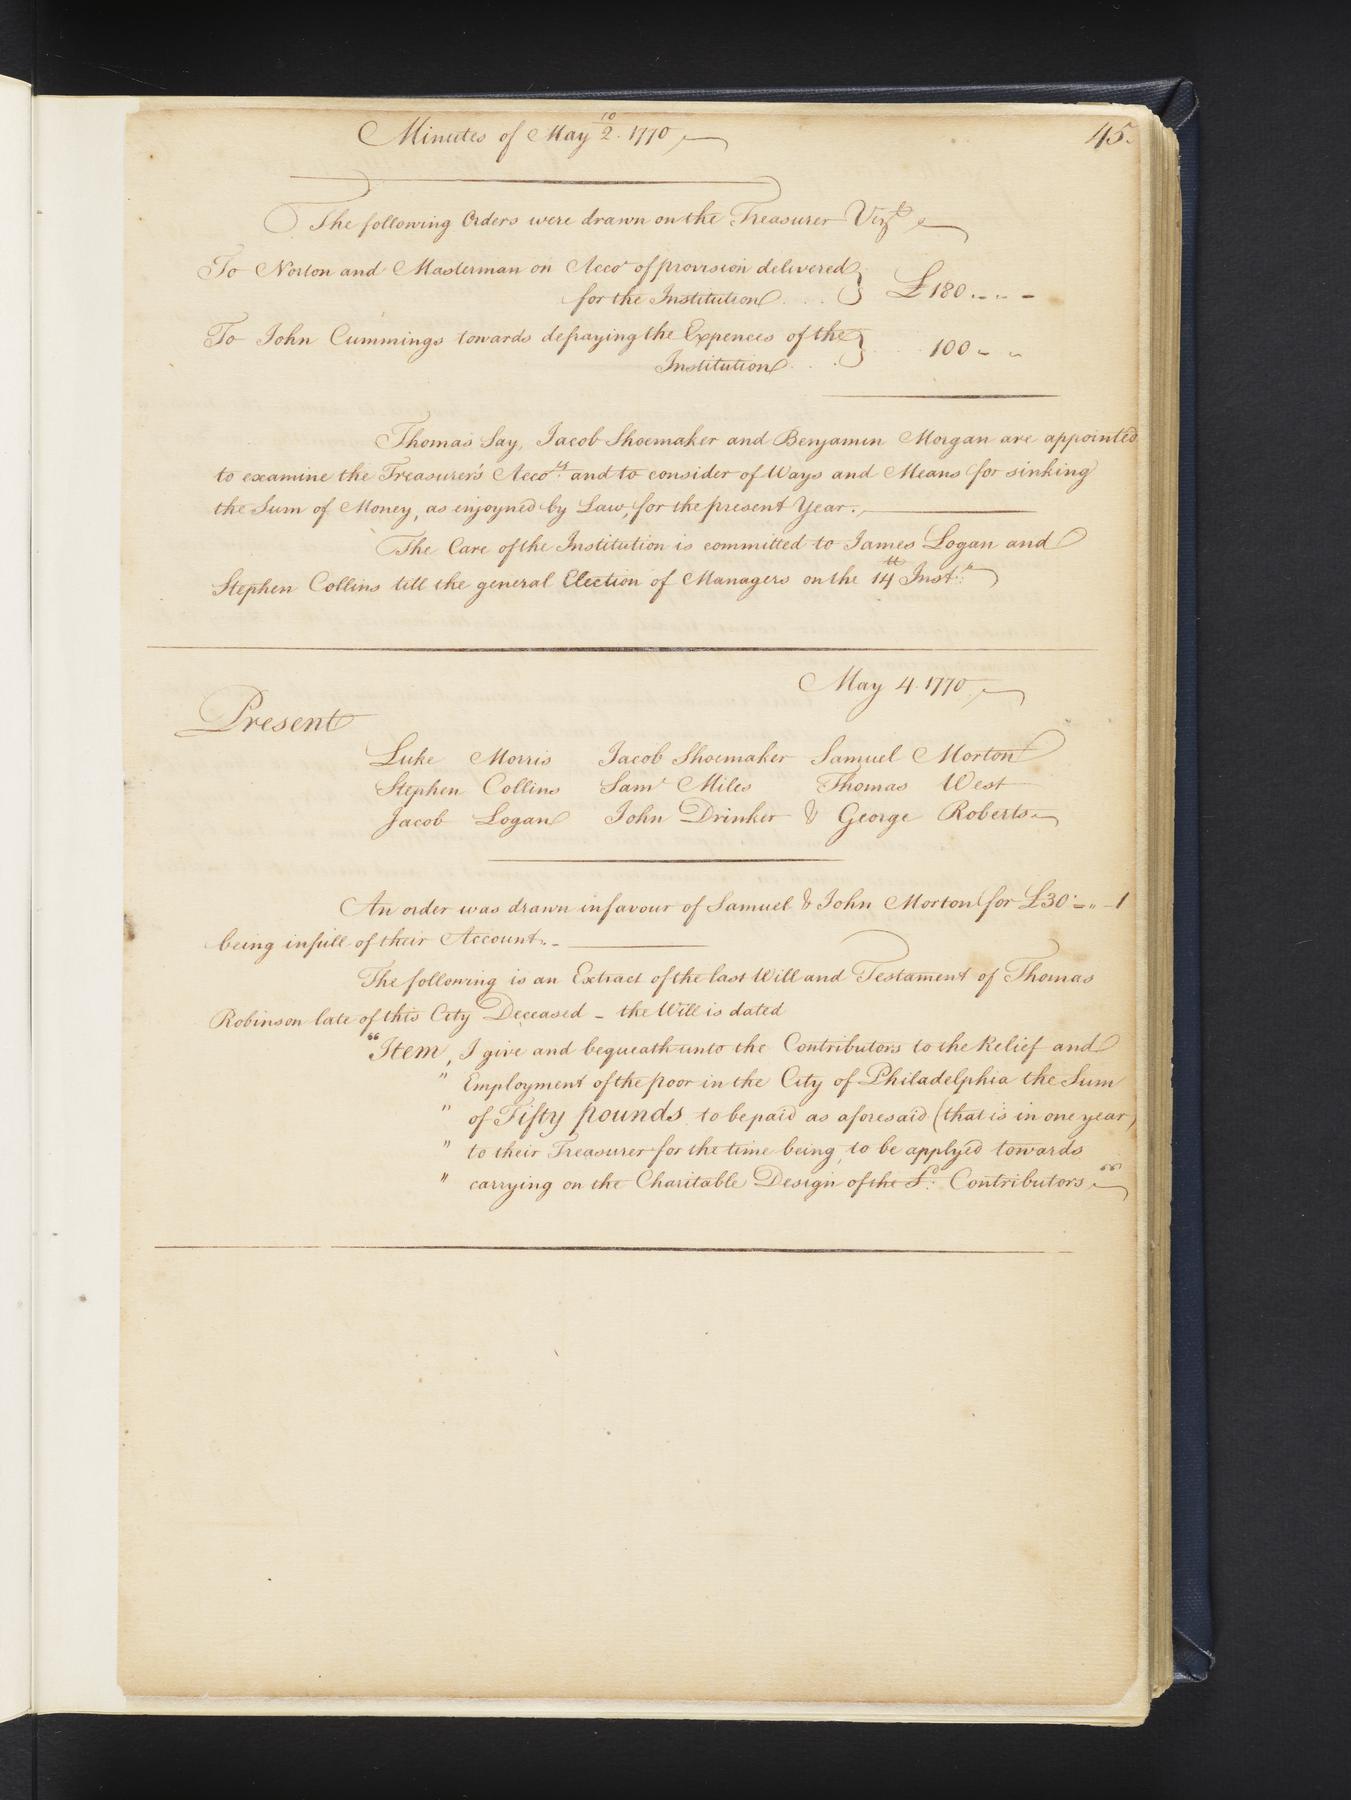 Minutes of May 2. 1770
45.
The following Orders were drawn on the Treasurer Vizt
To Norton and Masterman on Accot of provision delivered
for the Institution £180..
To John Cummings towards defraying the Expences of the
Institution 100
Thomas Say, Jacob Shoemaker and Benjamin Morgan are appointed
to examine the Treasurer's Accots and to consider of Ways and Means for sinking
the Sum of Money, as enjoyned by Law, for the present Year.
The Care of the Institution is committed to James Logan and
Stephen Collins till the general Election of Managers on the 14th Inst:
May 4. 1770
Present
Luke Morris Jacob Shoemaker Samuel Morton
Stephen Collins Saml Miles Thomas West
Jacob Logan John Drinker & George Roberts
An order was drawn in favour of Samuel & John Morton for £30 " 1
being in full of their Account.
The following is an Extract of the last Will and Testament of Thomas
Robinson late of this City Deceased - the Will is dated
"Item, I give and bequeath unto the Contributors to the Relief and
" Employment of the poor in the City of Philadelphia the Sum
" of Fifty pounds to be paid as aforesaid (that is in one year)
" to their Treasurer for the time being, to be applyed towards
" carrying on the Charitable Design of the sd: Contributors"